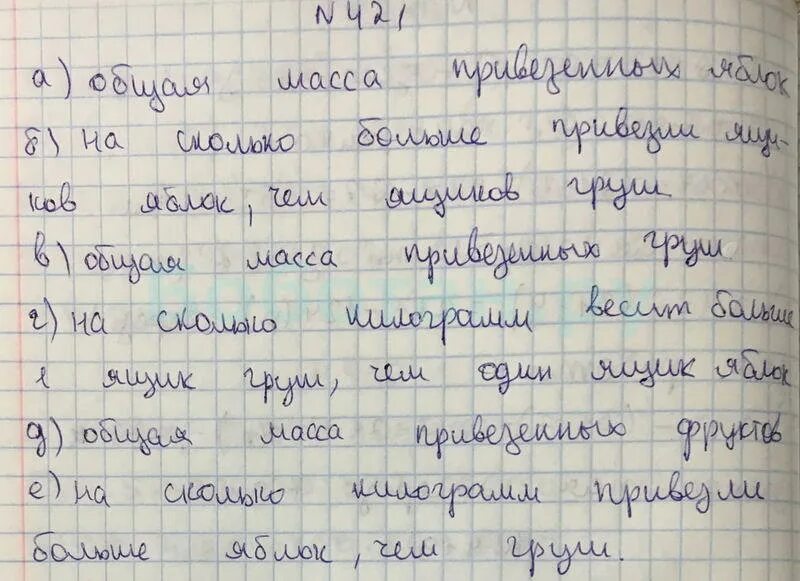 N 421
а) общая масса привезенных яблок
б) на сколько больше привезли ящи-
ков яблок, чем ящиков груш
в) общая масса привезенных груш
г) на сколько килограмм весит больше
1 ящик груш, чем один ящик яблок
д) общая масса привезенных фруктов
е) на сколько килограмм привезли
больше яблок, чем груш.